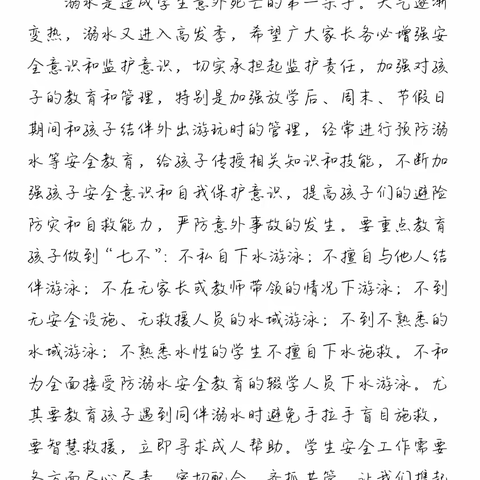 溺水是造成学生意外死亡的第一杀手。天气逐渐
变热，溺水又进入高发季，希望广大家长务必增强安
全意识和监护意识，切实承担起监护责任，加强对孩
子的教育和管理，特别是加强放学后、周末、节假日
期间和孩子结伴外出游玩时的管理，经常进行预防溺
水等安全教育，给孩子传授相关知识和技能，不断加
强孩子安全意识和自我保护意识，提高孩子们的避险
防灾和自救能力，严防意外事故的发生。要重点教育
孩子做到“七不”：不私自下水游泳；不擅自与他人结
伴游泳；不在无家长或教师带领的情况下游泳；不到
无安全设施、无救援人员的水域游泳；不到不熟悉的
水域游泳；不熟悉水性的学生不擅自下水施救。不和
为全面接受防溺水安全教育的辍学人员下水游泳。尤
其要教育孩子遇到同伴溺水时避免手拉手盲目施救，
要智慧救援，立即寻求成人帮助。学生安全工作需要
各方面尽心尽责、密切配合、齐抓共管，让我们携起